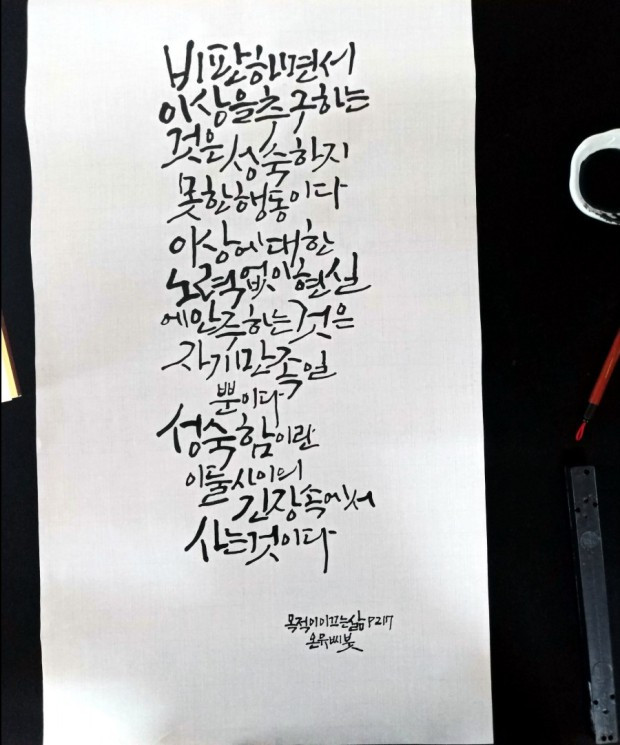 비판하면서
이상을추구하는
것은성숙하지
못한행동이다
이상에대한
노력없이현실
에안주하는것은
자기만족일
뿐이다
성숙함이란
이둘사이의
긴장속에서
사는것이다
목적이이끄는삶 P217
온유씨붓